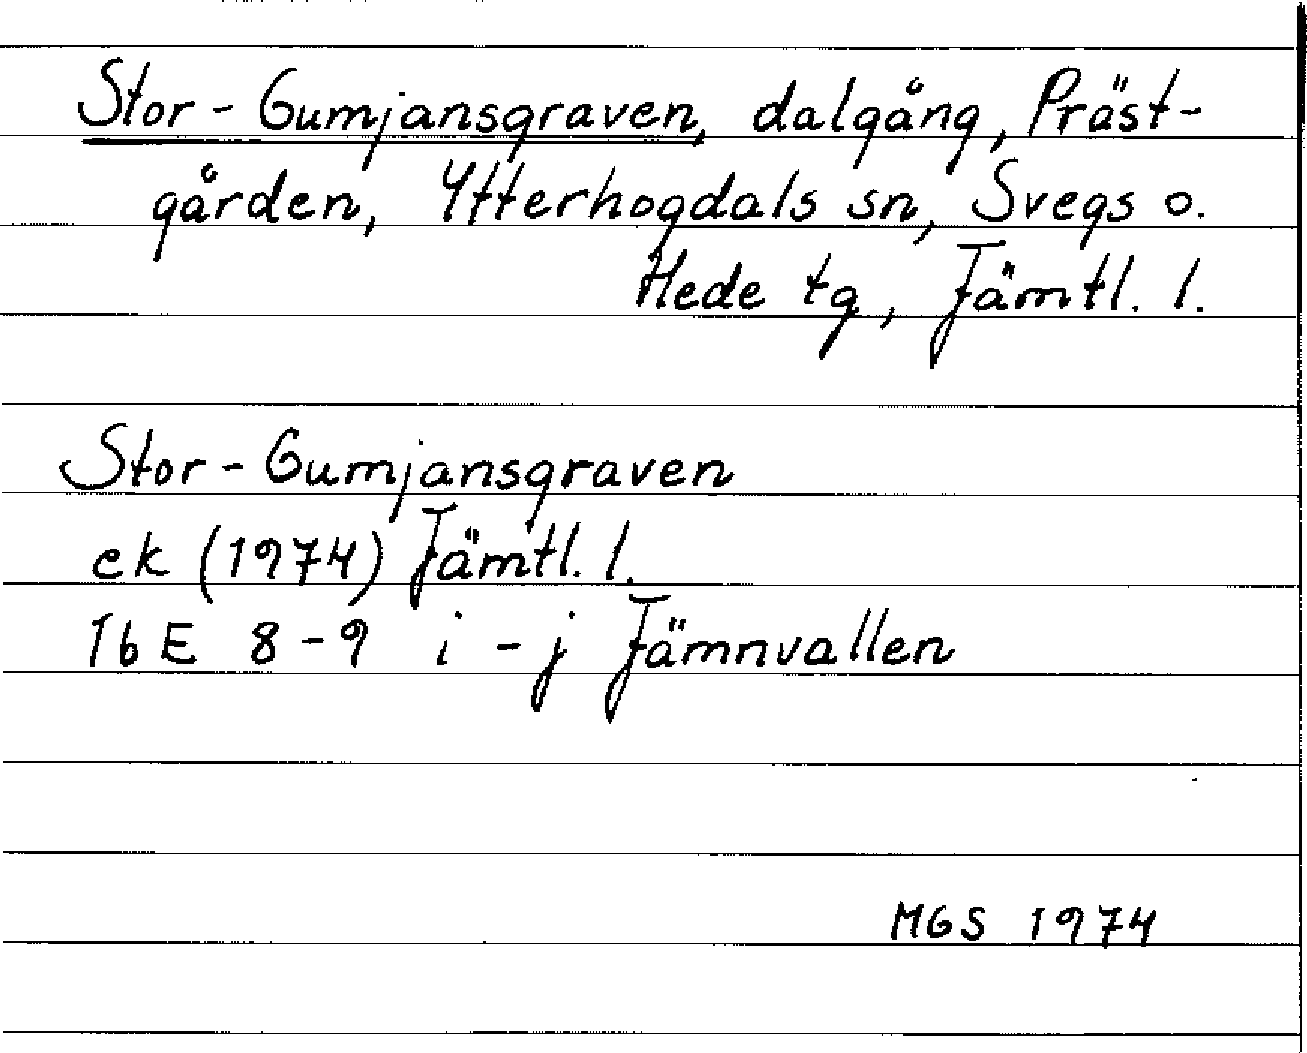 Stor-Gumjansgraven, dalgång, Präst-
gården, Ytterhogdals sn, Svegs o.
Hede tg, Jämtl. l.
Stor-Gumjansgraven
ek (1974) Jämtl. l.
16E 8-9 i-j Jämnvallen
MGS 1974